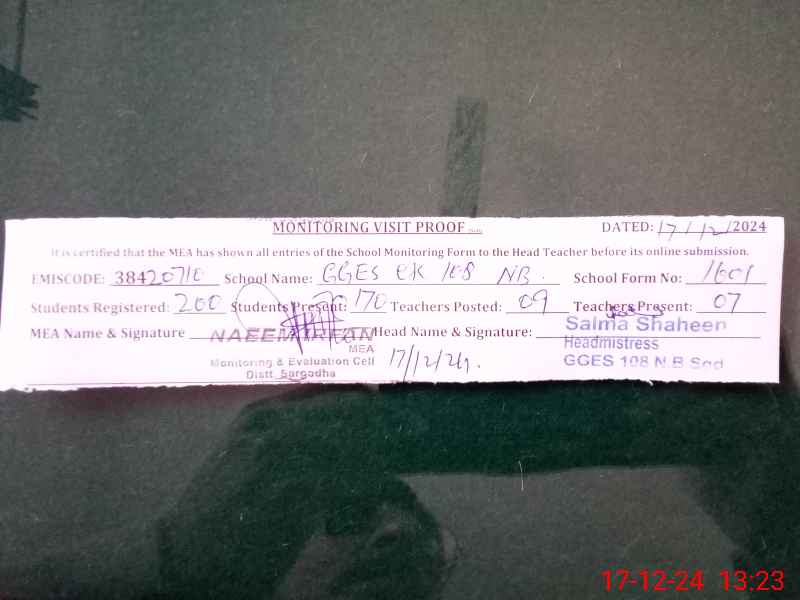 MONITORING VISIT PROOF DATED: 17/12/2024
It is certified that the MEA has shown all entries of the School Monitoring Form to the Head Teacher before its online submission.
EMISCODE: 38420710 School Name: GGES Ck 108 NB. School Form No: 1601
Students Registered: 200 Students Present: 170 Teachers Posted: 09 Teachers Present: 07
MEA Name & Signature NAEEM Head Name & Signature: Salma Shaheen
MEA
Headmistress
Monitoring & Evaluation Cell 17/12/24. GGES 108 N.B Sgd
Distt Sargodha
17-12-24 13:23